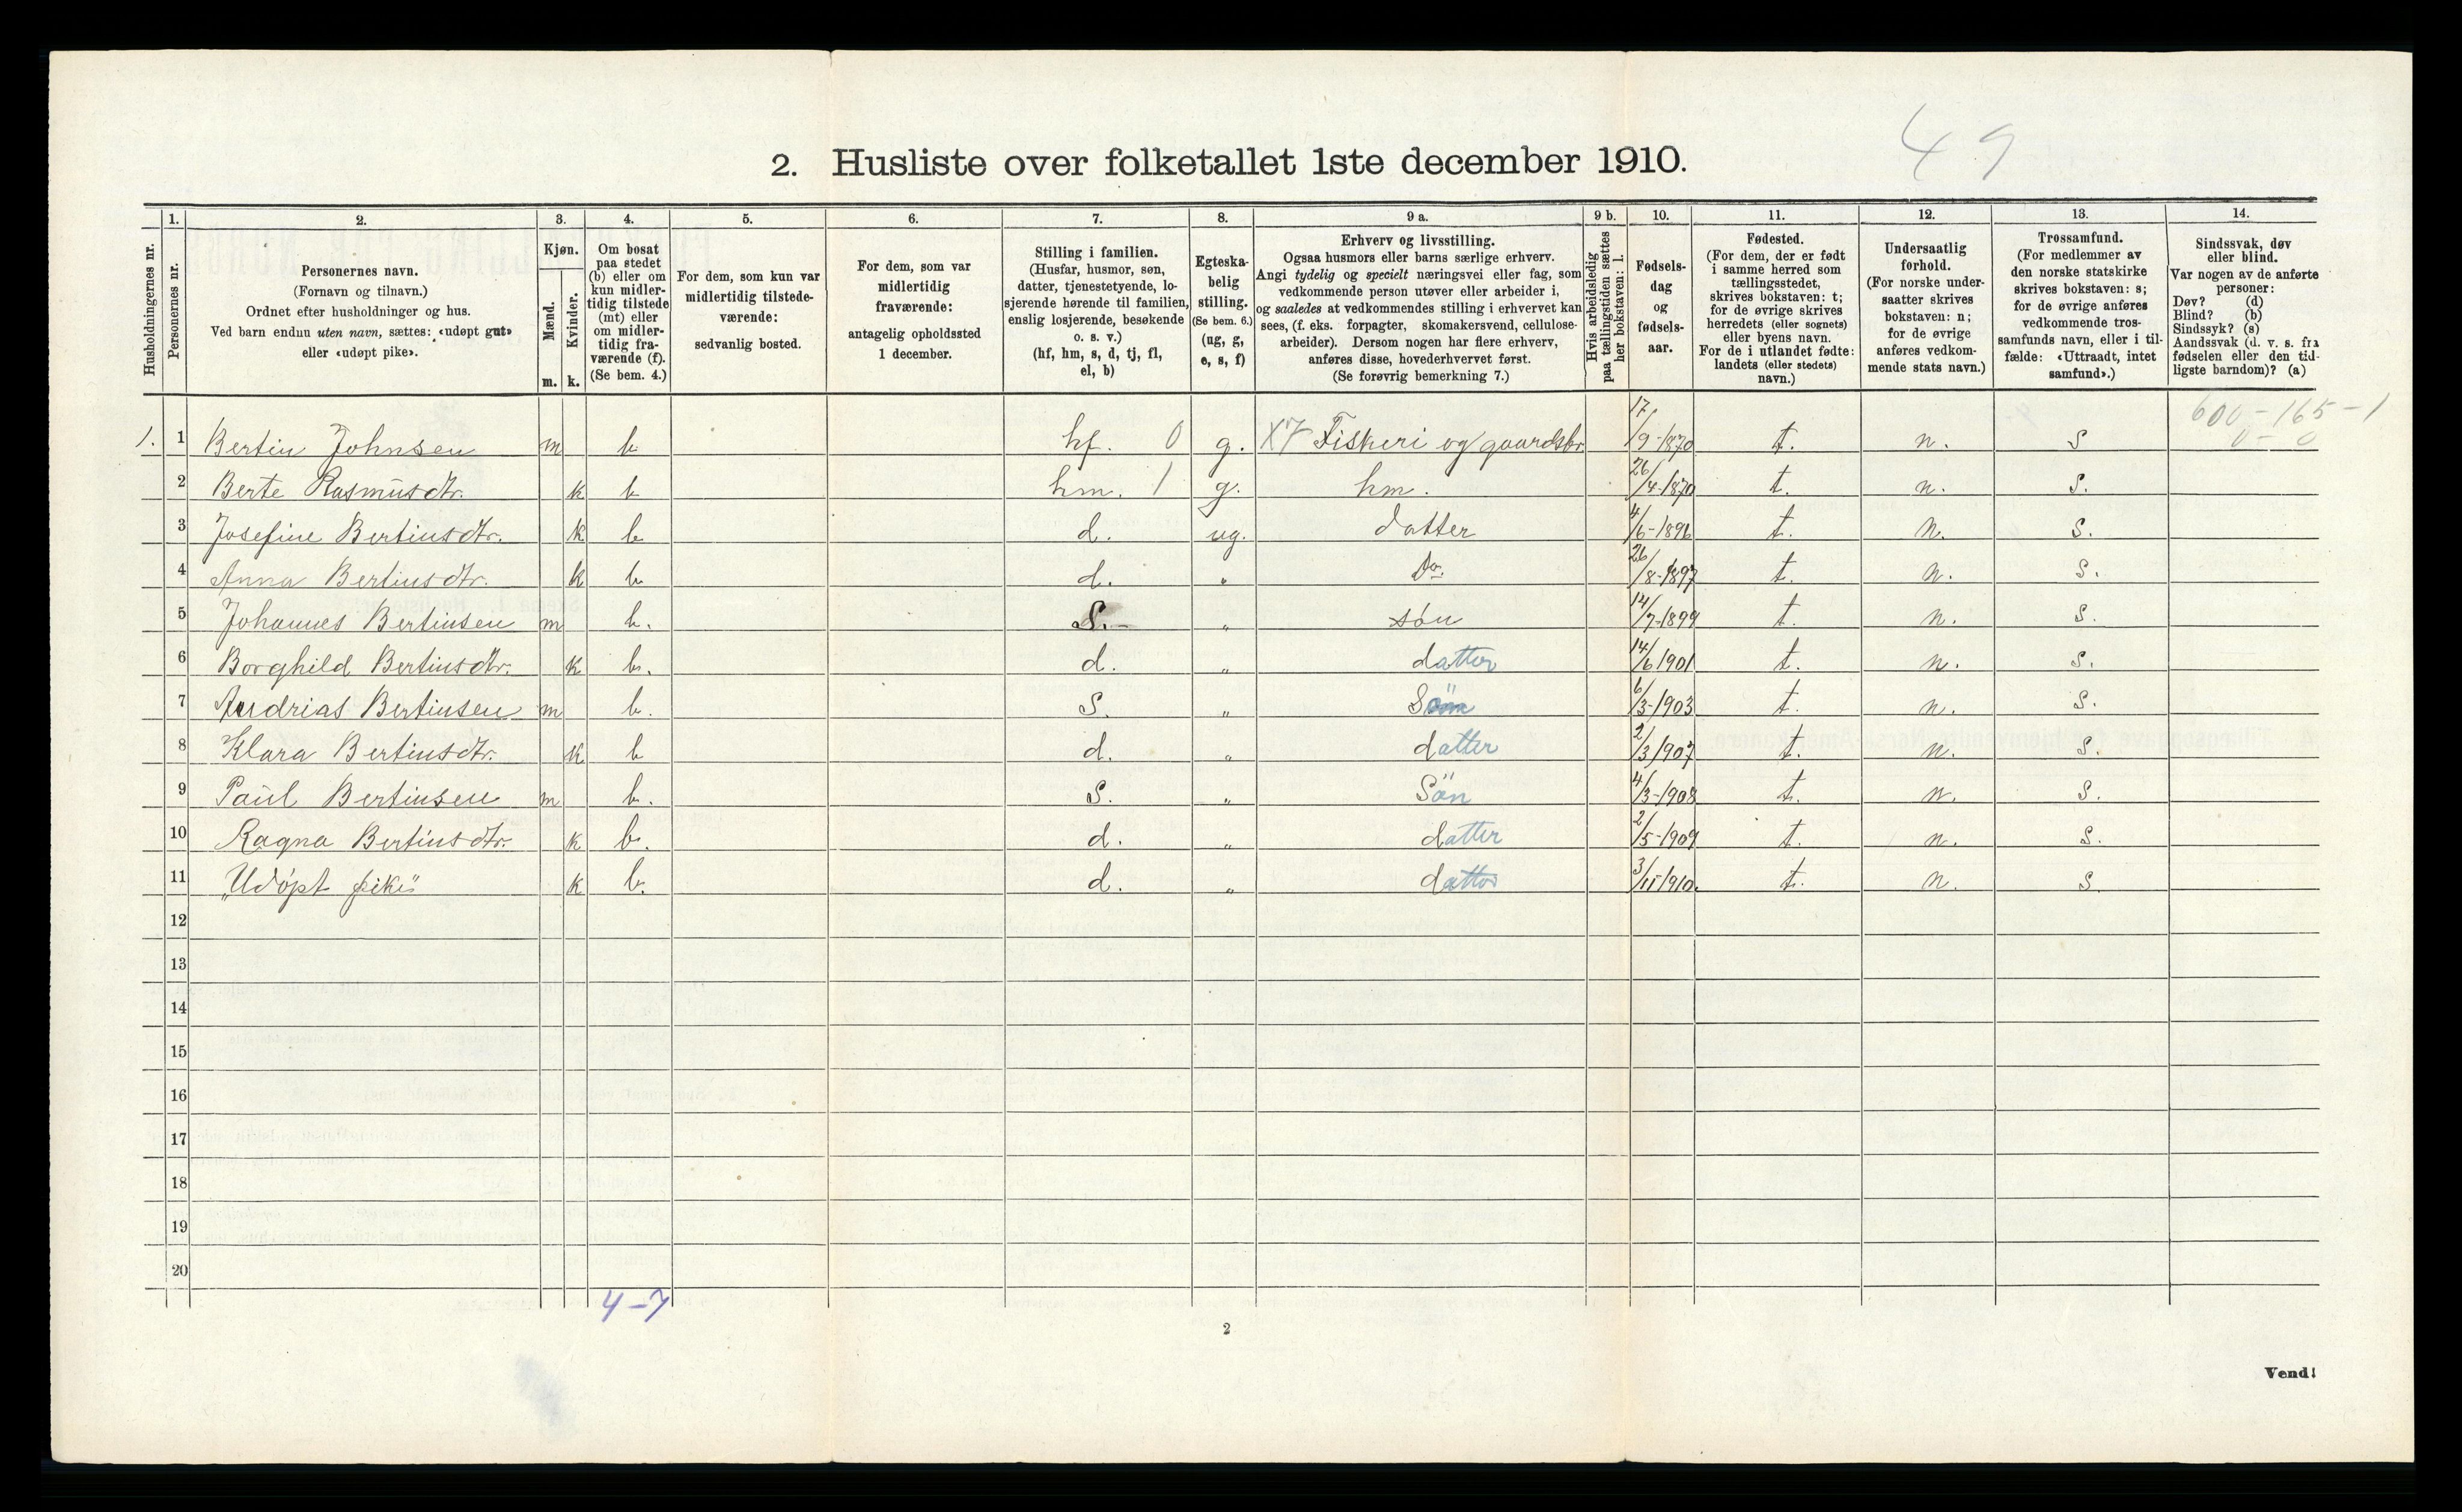 49
2. Husliste over folketallet 1ste december 1910.
Husholdningernes nr.
1.
Personernes nr.
2.
Personernes navn.
(Fornavn og tilnavn.)
Ordnet efter husholdninger og hus.
Ved barn endnu uten navn, sættes: «udøpt gut»
eller «udøpt pike».
3.
Kjøn.
Mænd.
m.
Kvinder.
k.
4.
Om bosat
paa stedet
(b) eller om
kun midler-
tidig tilstede
(mt) eller
om midler-
tidig fra-
værende (f).
(Se bem. 4.)
5.
For dem, som kun var
midlertidig tilstede-
værende:
sedvanlig bosted.
6.
For dem, som var
midlertidig
fraværende:
antagelig opholdssted
1 december.
7.
Stilling i familien.
(Husfar, husmor, søn,
datter, tjenestetyende, lo-
sjerende hørende til familien,
enslig losjerende, besøkende
o. s. v.)
(hf, hm, s, d, tj, fl,
el, b)
8.
Egteska-
belig
stilling.
(Se bem. 6.)
(ug, g,
e, s, f)
9 a.
Erhverv og livsstilling.
Ogsaa husmors eller barns særlige erhverv.
Angi tydelig og specielt næringsvei eller fag, som
vedkommende person utøver eller arbeider i,
og saaledes at vedkommendes stilling i erhvervet kan
sees, (f. eks. forpagter, skomakersvend, cellulose-
arbeider). Dersom nogen har flere erhverv,
anføres disse, hovederhvervet først.
(Se forøvrig bemerkning 7.)
9 b.
Hvis arbeidsledig
paa tællingstiden sættes
her bokstaven: l.
10.
Fødsels-
dag
og
fødsels-
aar.
11.
Fødested.
(For dem, der er født
i samme herred som
tællingsstedet,
skrives bokstaven: t;
for de øvrige skrives
herredets (eller sognets)
eller byens navn.
For de i utlandet fødte:
landets (eller stedets)
navn.)
12.
Undersaatlig
forhold.
(For norske under-
saatter skrives
bokstaven: n;
for de øvrige
anføres vedkom-
mende stats navn.)
13.
Trossamfund.
(For medlemmer av
den norske statskirke
skrives bokstaven: s;
for de øvrige anføres
vedkommende tros-
samfunds navn, eller i til-
fælde: «Uttraadt, intet
samfund».)
14.
Sindssvak, døv
eller blind.
Var nogen av de anførte
personer:
Døv? (d)
Blind? (b)
Sindssyk? (s)
Aandssvak (d. v. s. fra
fødselen eller den tid-
ligste barndom)? (a)
600-165-1
0-0
1. 1 Bertin Johnsen m b hf. 0 g. X7 Fiskeri og gaardsbr. 17/9-1870 t. n. S
2 Berte Rasmusdtr. k b hm. 1 g. hm. 26/4-1870 t. n. S.
3 Josefine Bertinsdtr. k b d. ug. datter 4/6-1896 t. n. S.
4 Anna Bertinsdtr. k b d. " Do. 26/8-1897 t. n. S.
5 Johannes Bertinsen m b. S. " søn 14/7-1899 t. n. S.
6 Borghild Bertinsdtr. k b. d. " datter 14/6 1901 t. n. S.
7 Andrias Bertinsen m b. S. " Sön 6/3-1903 t. n. S.
8 Klara Bertinsdtr. k b d. " datter 2/3 1907 t. n. S.
9 Paul Bertinsen m b. S. " Sön 4/3-1908 t. n. S.
10 Ragna Bertinsdtr. k b. d. " datter 2/5-1909 t. n. S.
11 „Udøpt pike" k b. d. " datter 3/11 1910. t. n. S.
12
13
14
15
16
17
18
19
20
4-7
2
Vend!